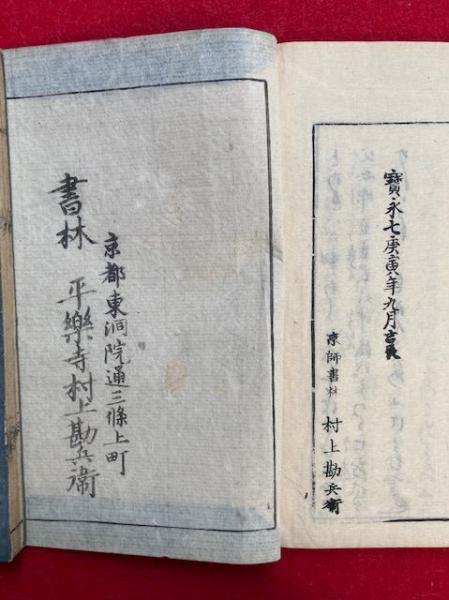 寳永七庚寅年九月吉辰
京師書林 村上勘兵衛
京都東洞院通三條上町
書林 平樂寺村上勘兵衛